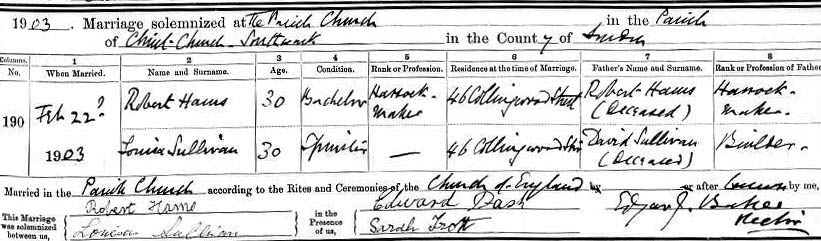 1903. Marriage solemnized at The Parish Church in the Parish
of Christ-Church Southwark in the County of London
Columns. 1 2 3 4 5 6 7 8
No. When Married. Name and Surname. Age. Condition. Rank or Profession. Residence at the time of Marriage. Father's Name and Surname. Rank or Profession of Father
190 Feb 22 Robert Hams 30 Bachelor Hassock-maker 46 Collingwood Street Robert Hams (Deceased) Hassock-maker
1903 Louisa Sullivan 30 Spinster — 46 Collingwood Street David Sullivan (Deceased) Builder
Married in the Parish Church according to the Rites and Ceremonies of the Church of England by or after Banns by me,
This Marriage was solemnized between us, Robert Hams in the Presence of us, Edward Dash Edgar J. Baker Rector
Louisa Sullivan Sarah Trott